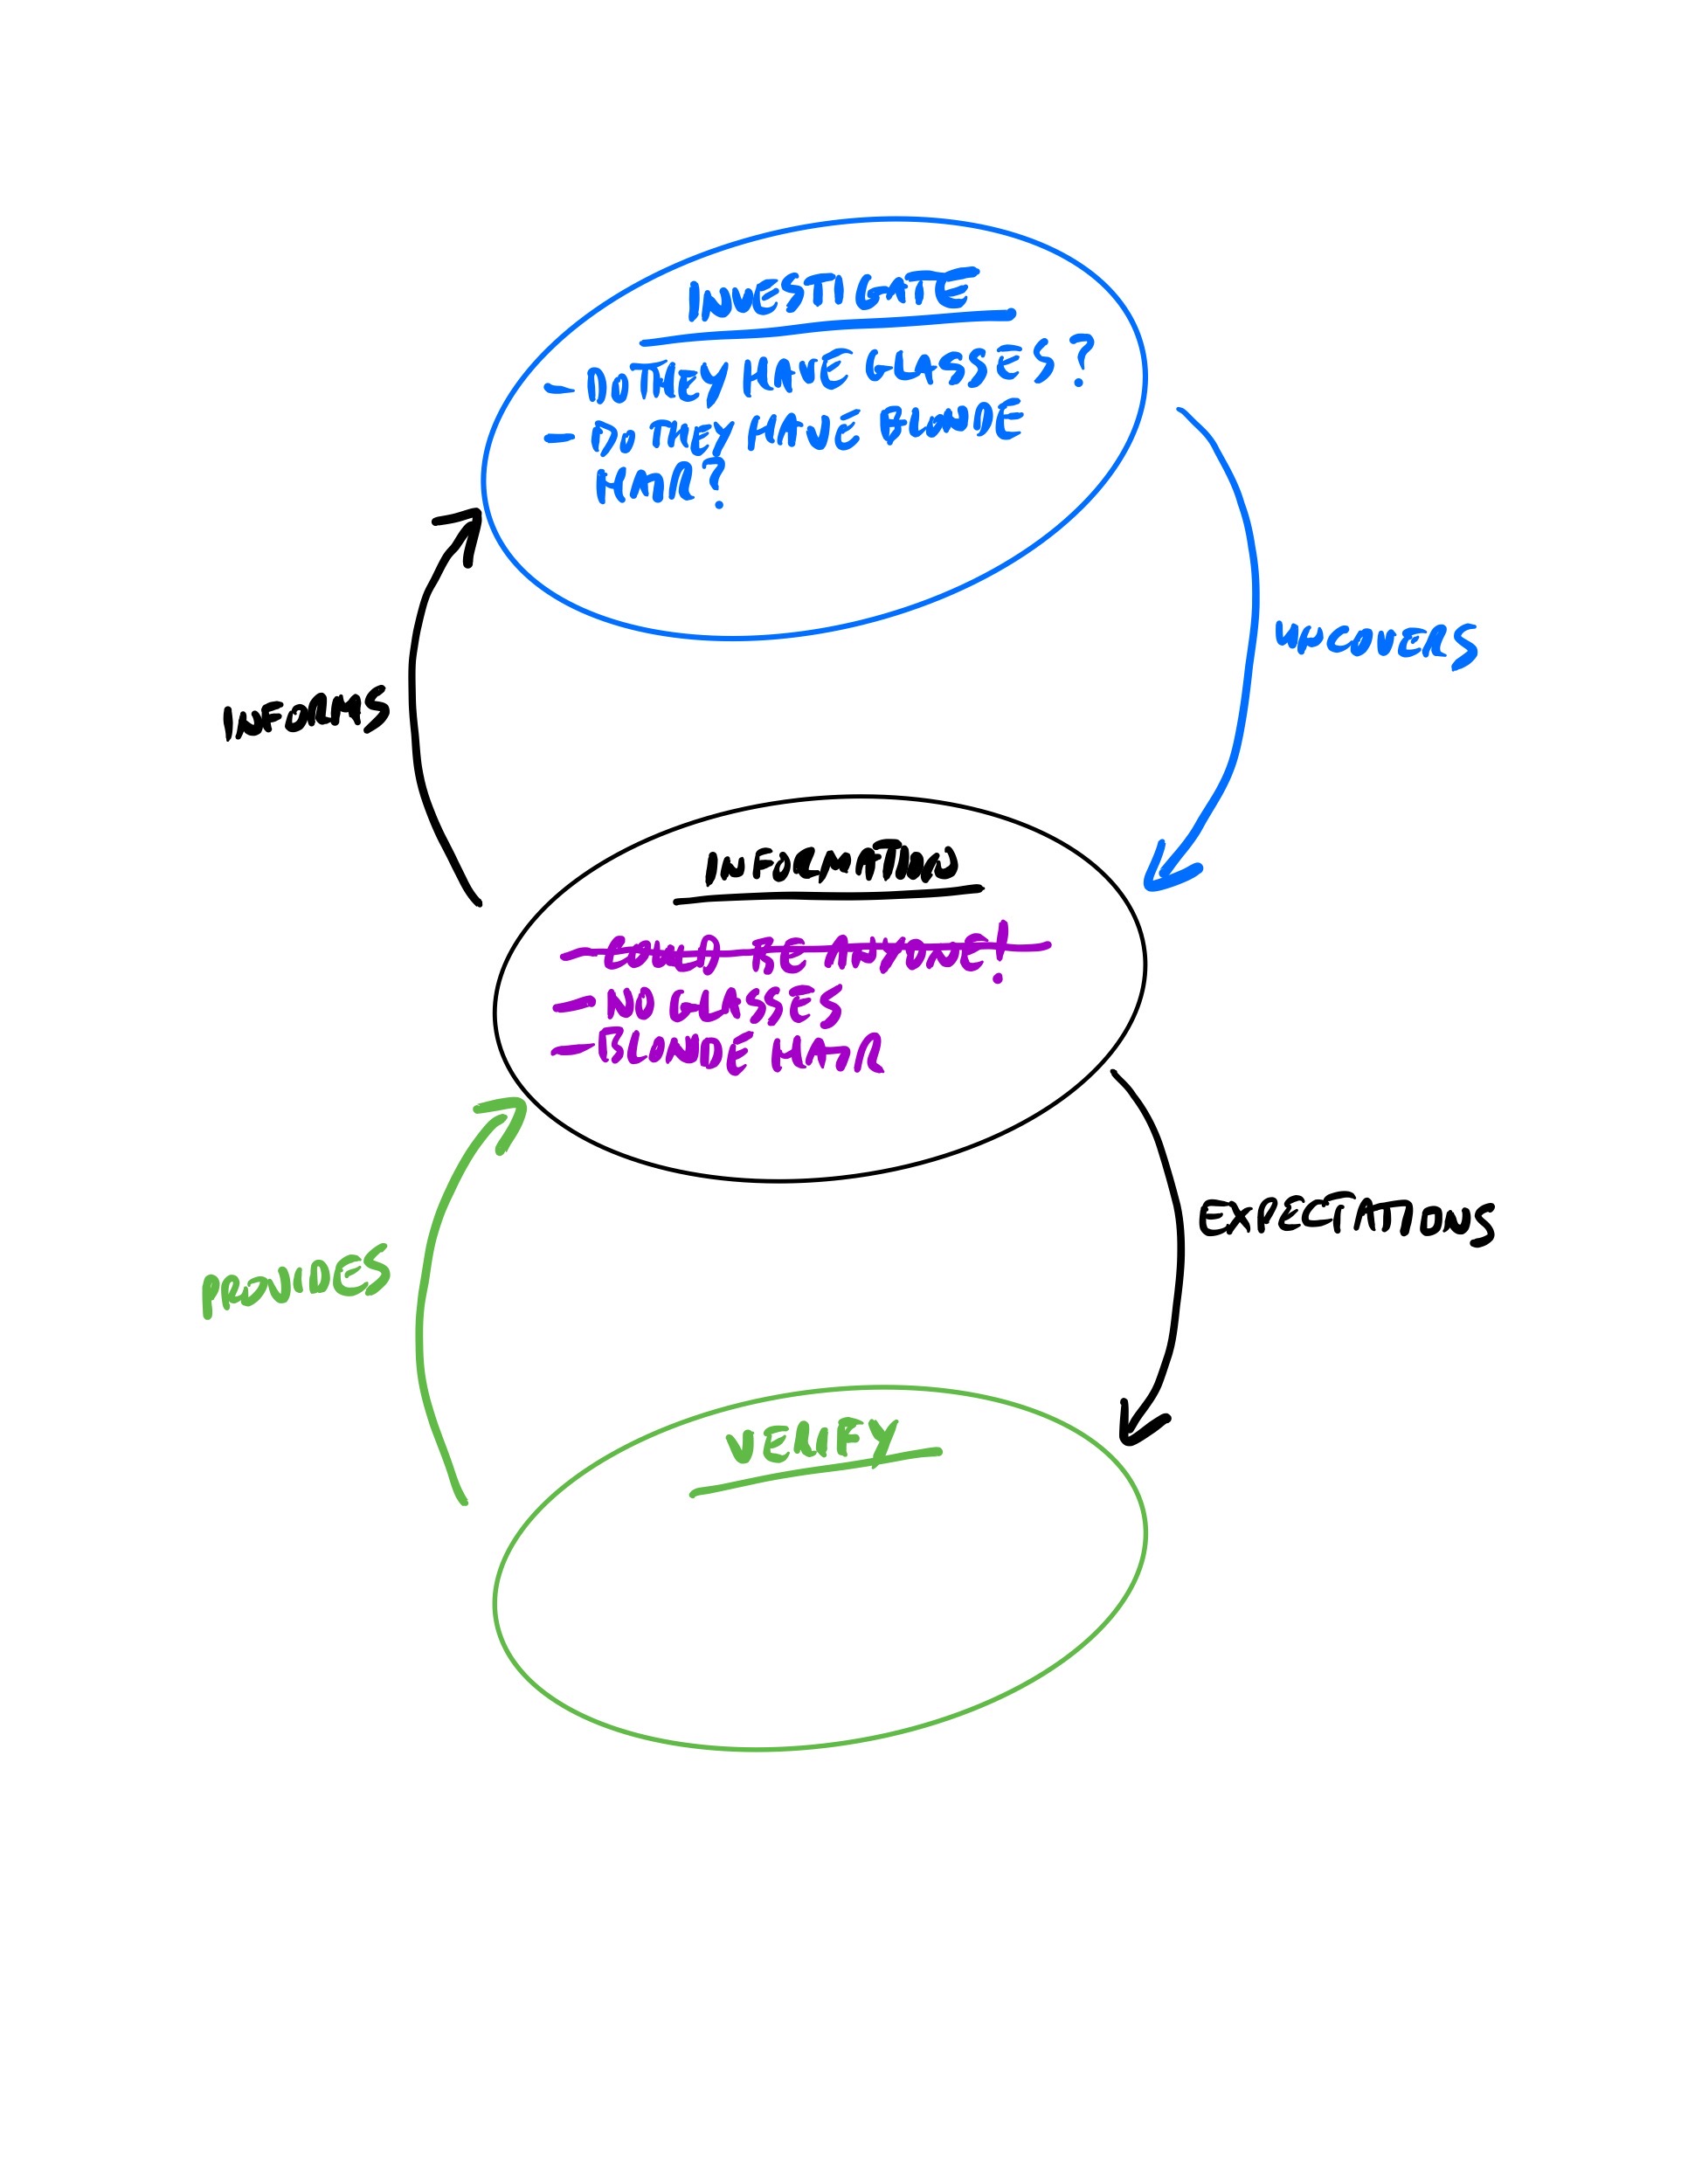 INVESTIGATE
- DO THEY HAVE GLASSES?
- DO THEY HAVE BLONDE
HAIR?
UNCOVERS
INFORMS
INFORMATION
- COULD BE ANYONE!
- NO GLASSES
- BLONDE HAIR
EXPECTATIONS
PROVIDES
VERIFY